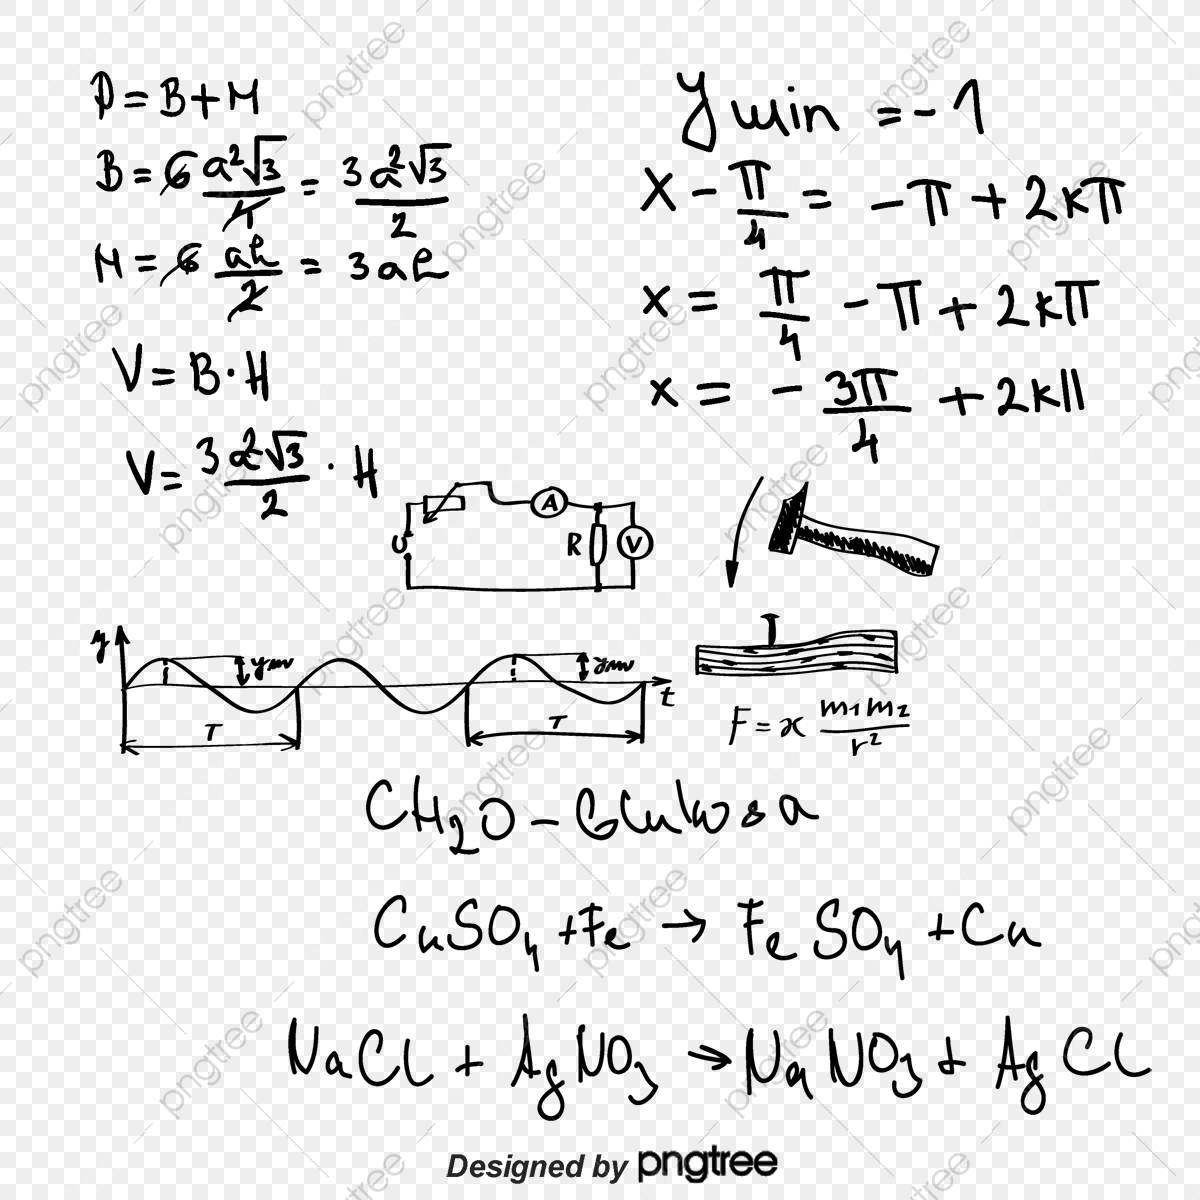 P = B + M
B = 6 a²√3/4 = 3a²√3/2
M = 6 ah/2 = 3ah
V = B · H
V = 3a²√3/2 · H
y min = -1
x - π/4 = -π + 2kπ
x = π/4 - π + 2kπ
x = -3π/4 + 2kπ
U
A
R
V
y
T
T
t
F = x m1m2/r²
CH2O - Glukosa
CuSO4 + Fe → FeSO4 + Cu
NaCl + AgNO3 → NaNO3 + AgCl
Designed by pngtree